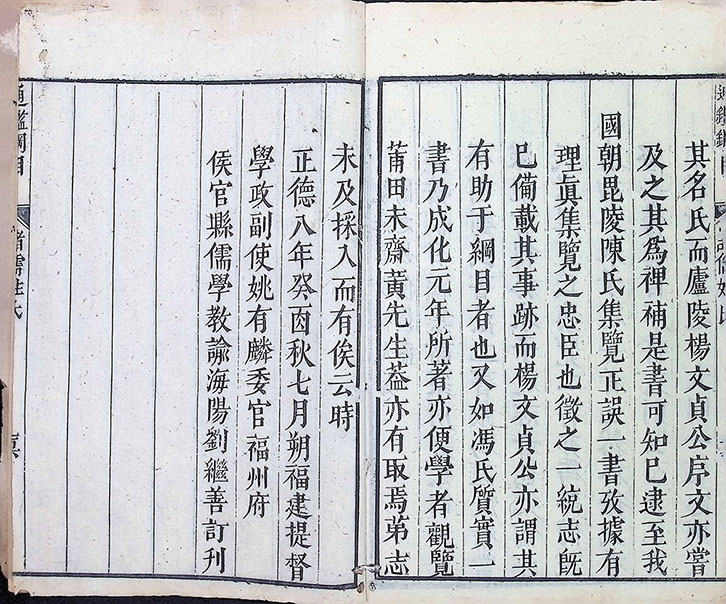 其名氏而廬陵楊文貞公序文亦嘗
及之其爲裨補是書可知已逮至我
國朝毘陵陳氏集覽正誤一書攷據有
理眞集覽之忠臣也徵之一統志旣
已備載其事跡而楊文貞公亦謂其
有助于綱目者也又如馮氏質實一
書乃成化元年所著亦便學者觀覽
莆田未齋黄先生葢亦有取焉第志
未及採入而有俟云時
正德八年癸酉秋七月朔福建提督
學政副使姚有麟委官福州府
侯官縣儒學教諭海陽劉繼善訂刋
通鑑綱目
諸儒姓氏